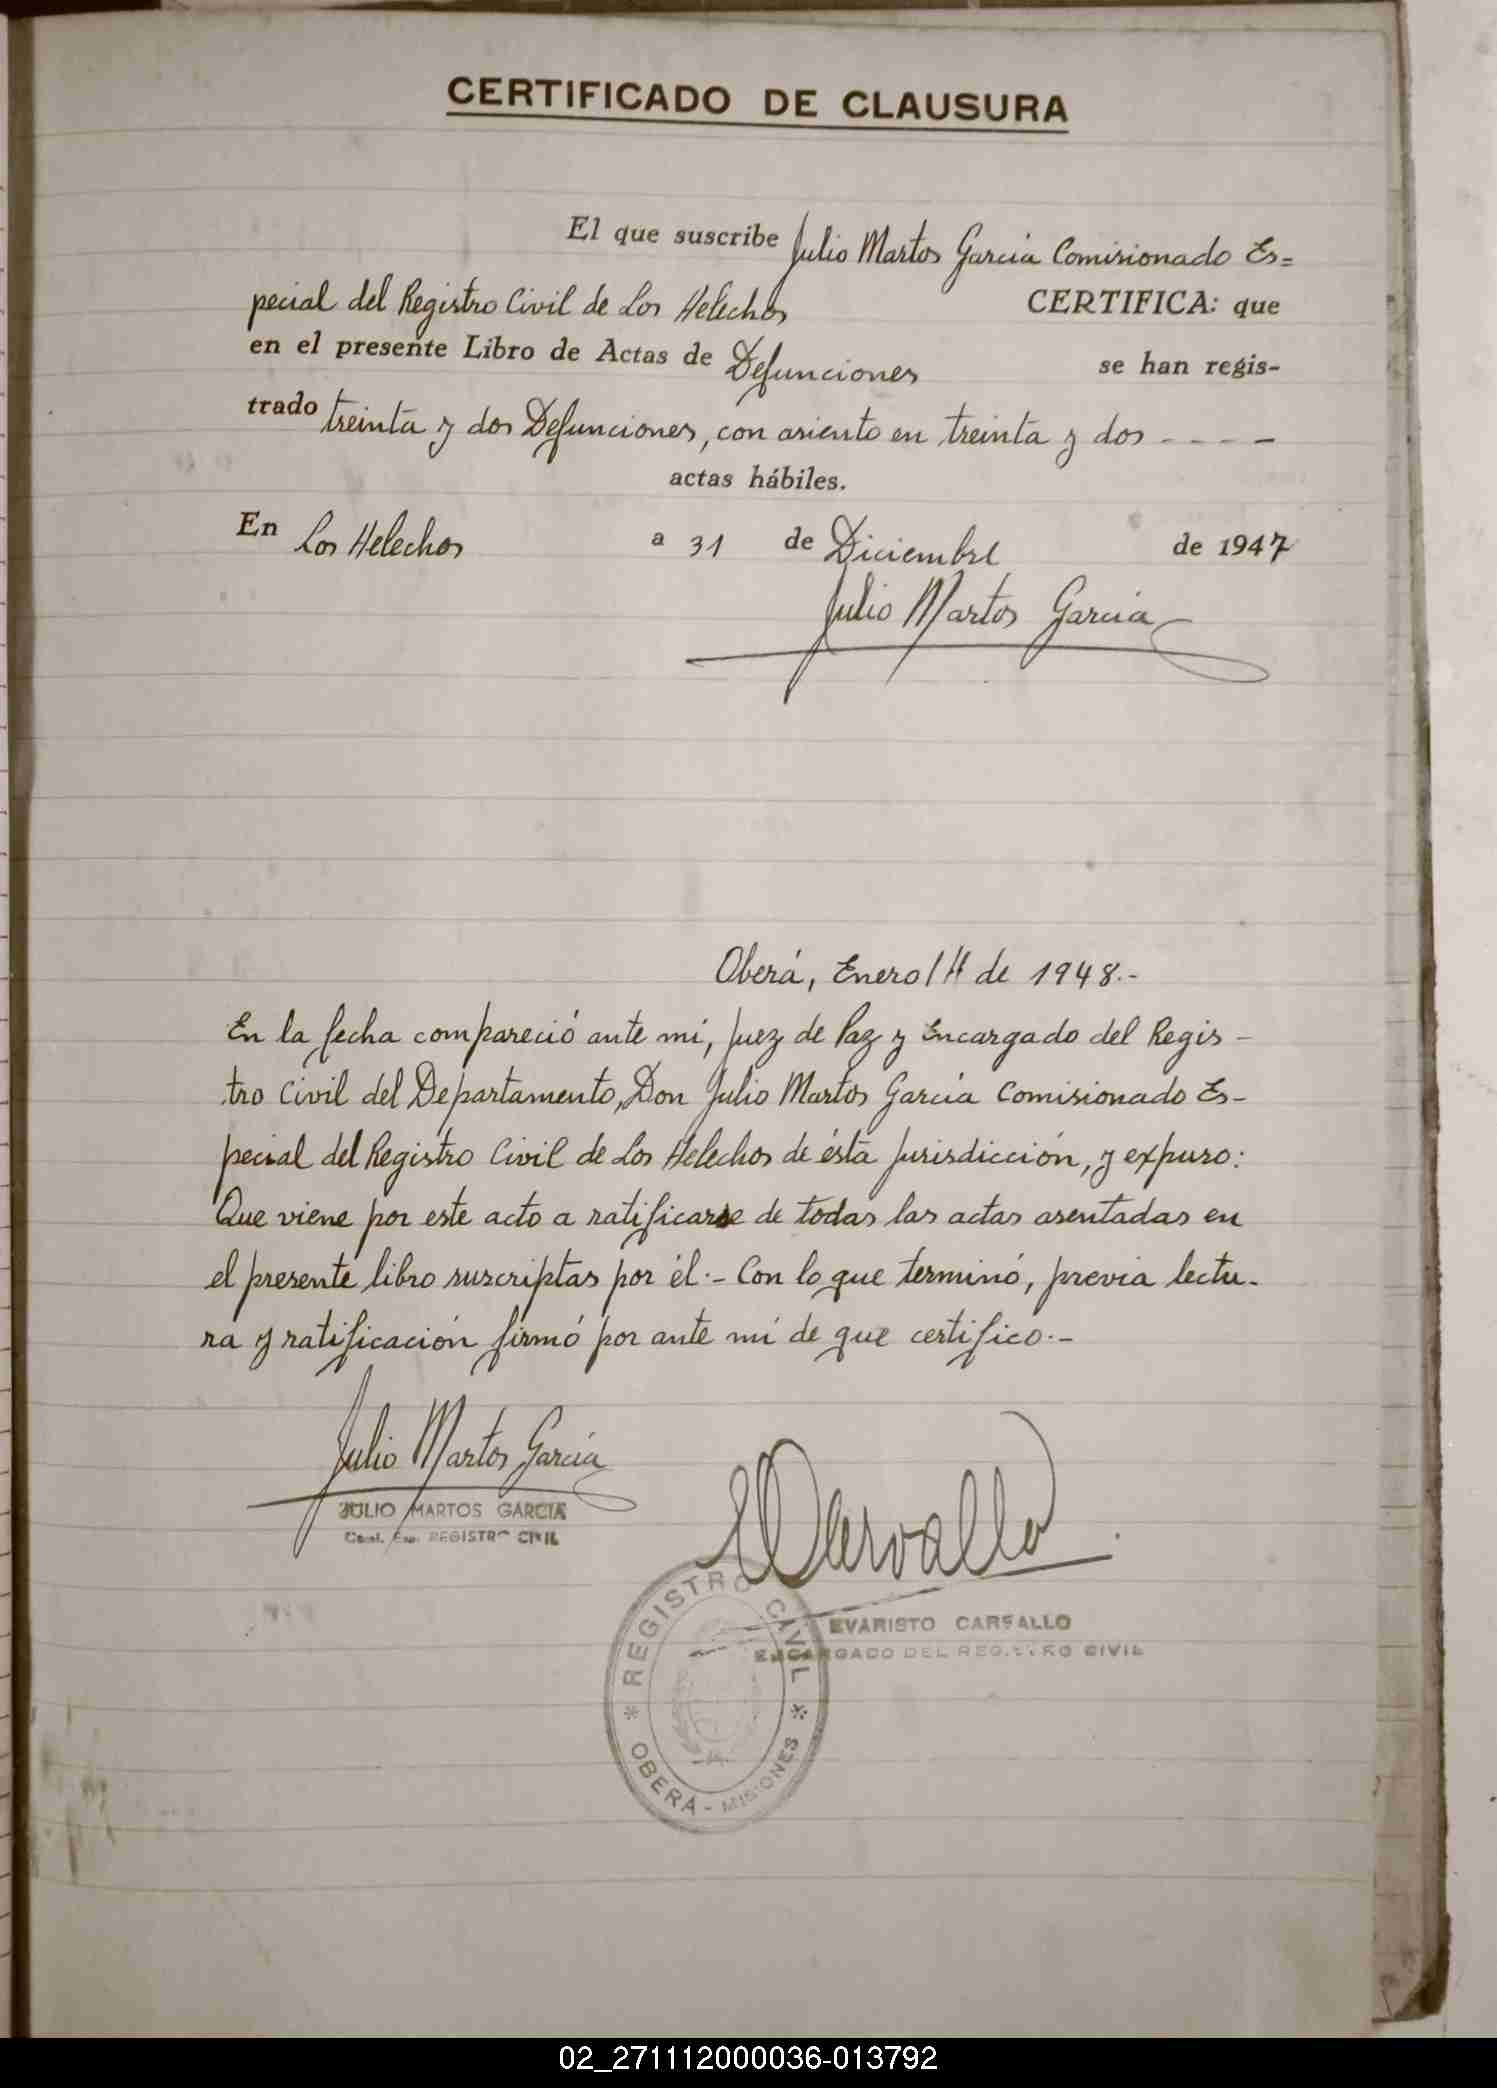 CERTIFICADO DE CLAUSURA
El que suscribe Julio Martos García Comisionado Es=
pecial del Registro Civil de Los Helechos CERTIFICA: que
en el presente Libro de Actas de Defunciones se han regis-
trado treinta y dos Defunciones, con asiento en treinta y dos - - - -
actas hábiles.
En Los Helechos a 31 de Diciembre de 1947
Julio Martos García
Oberá, Enero 14 de 1948.-
En la fecha compareció ante mí, Juez de Paz y Encargado del Regis-
tro Civil del Departamento, Don Julio Martos García Comisionado Es-
pecial del Registro Civil de Los Helechos de ésta jurisdicción, y expuso:
Que viene por este acto a ratificarse de todas las actas asentadas en
el presente libro suscriptas por él.- Con lo que terminó, previa lectu-
ra y ratificación firmó por ante mí de que certifico.-
Julio Martos García
JULIO MARTOS GARCIA
Comi. Esp. REGISTRO CIVIL
ECarvallo
EVARISTO CARVALLO
ENCARGADO DEL REGISTRO CIVIL
REGISTRO CIVIL
* OBERÁ - MISIONES *
02_271112000036-013792